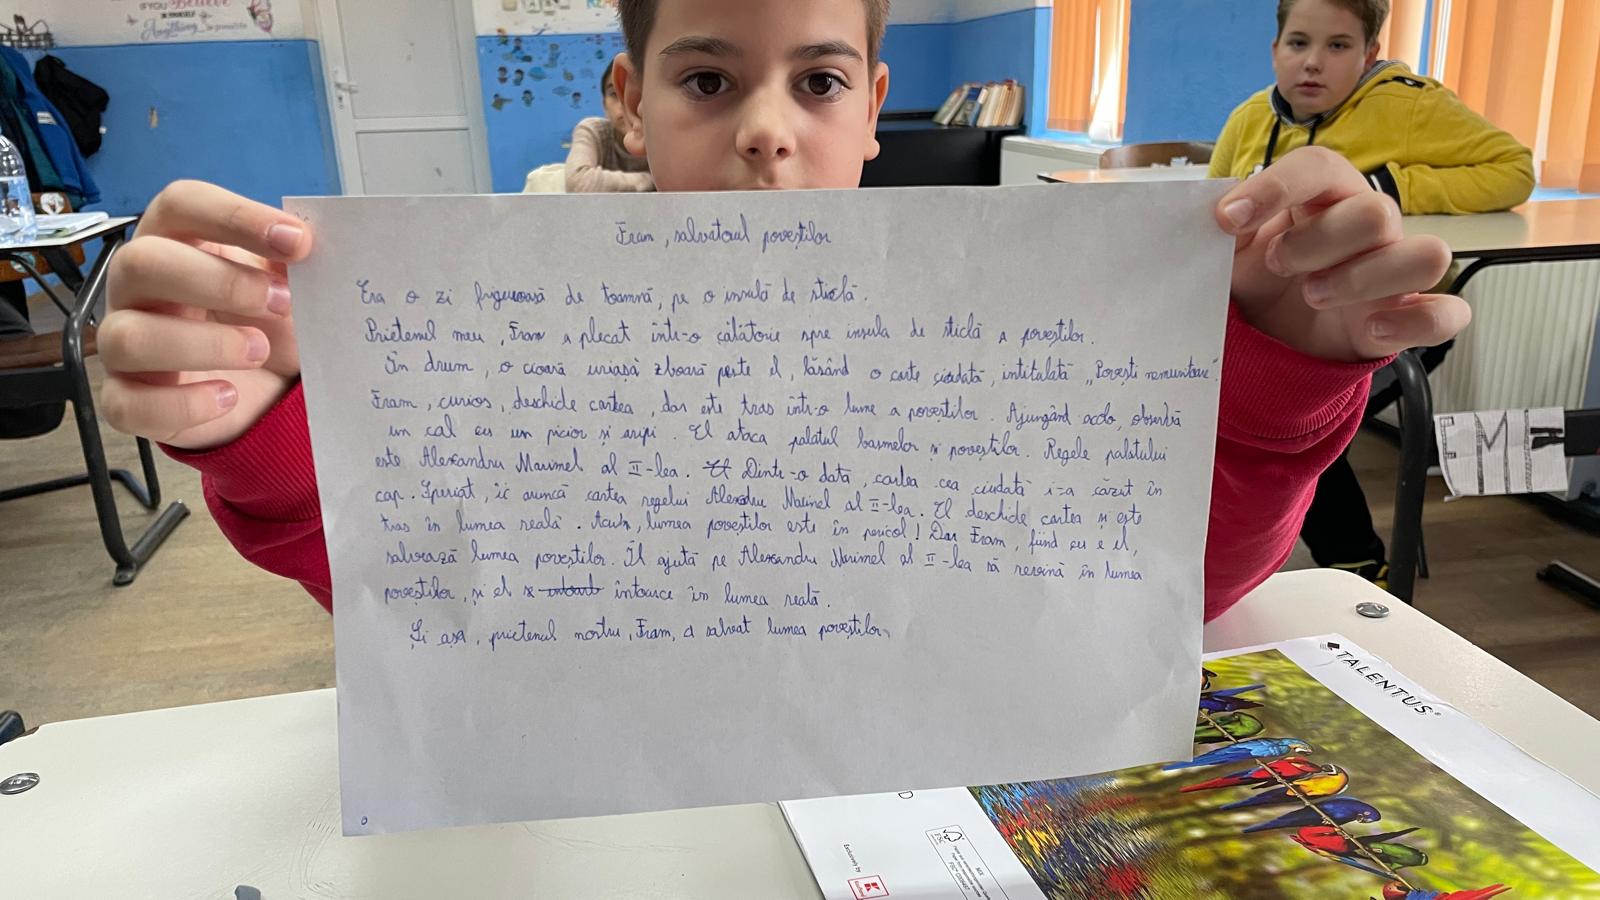 IF YOU Believe
IN YOURSELF
Anything is possible
Fram, salvatorul poveștilor
Era o zi friguroasă de toamnă, pe o insulă de sticlă.
Prietenul meu, Fram a plecat într-o călătorie spre insula de sticlă a poveștilor.
În drum, o cioară uriașă zboară peste el, lăsând o carte ciudată, intitulată „Povești nemuritoare".
Fram, curios, deschide cartea, dar este tras într-o lume a poveștilor. Ajungând acolo observă
un cal cu un picior și aripi. El ataca palatul basmelor și poveștilor. Regele palatului
este Alexandru Marinel al II-lea. El Dintr-o dată, cartea cea ciudată i-a căzut în
cap. Speriat, îi aruncă cartea regelui Alexadru Marinel al II-lea. El deschide cartea și este
tras în lumea reală. Acum, lumea poveștilor este în pericol! Dar Fram, fiind cu e el,
salvează lumea poveștilor. Îl ajută pe Alexandru Marinel al II-lea să revină în lumea
poveștilor, și el se întoarce în lumea reală.
Și așa, prietenul nostru, Fram, a salvat lumea poveștilor.
TALENTUS®
D
Exclusively by
FSC
MIX
EMI